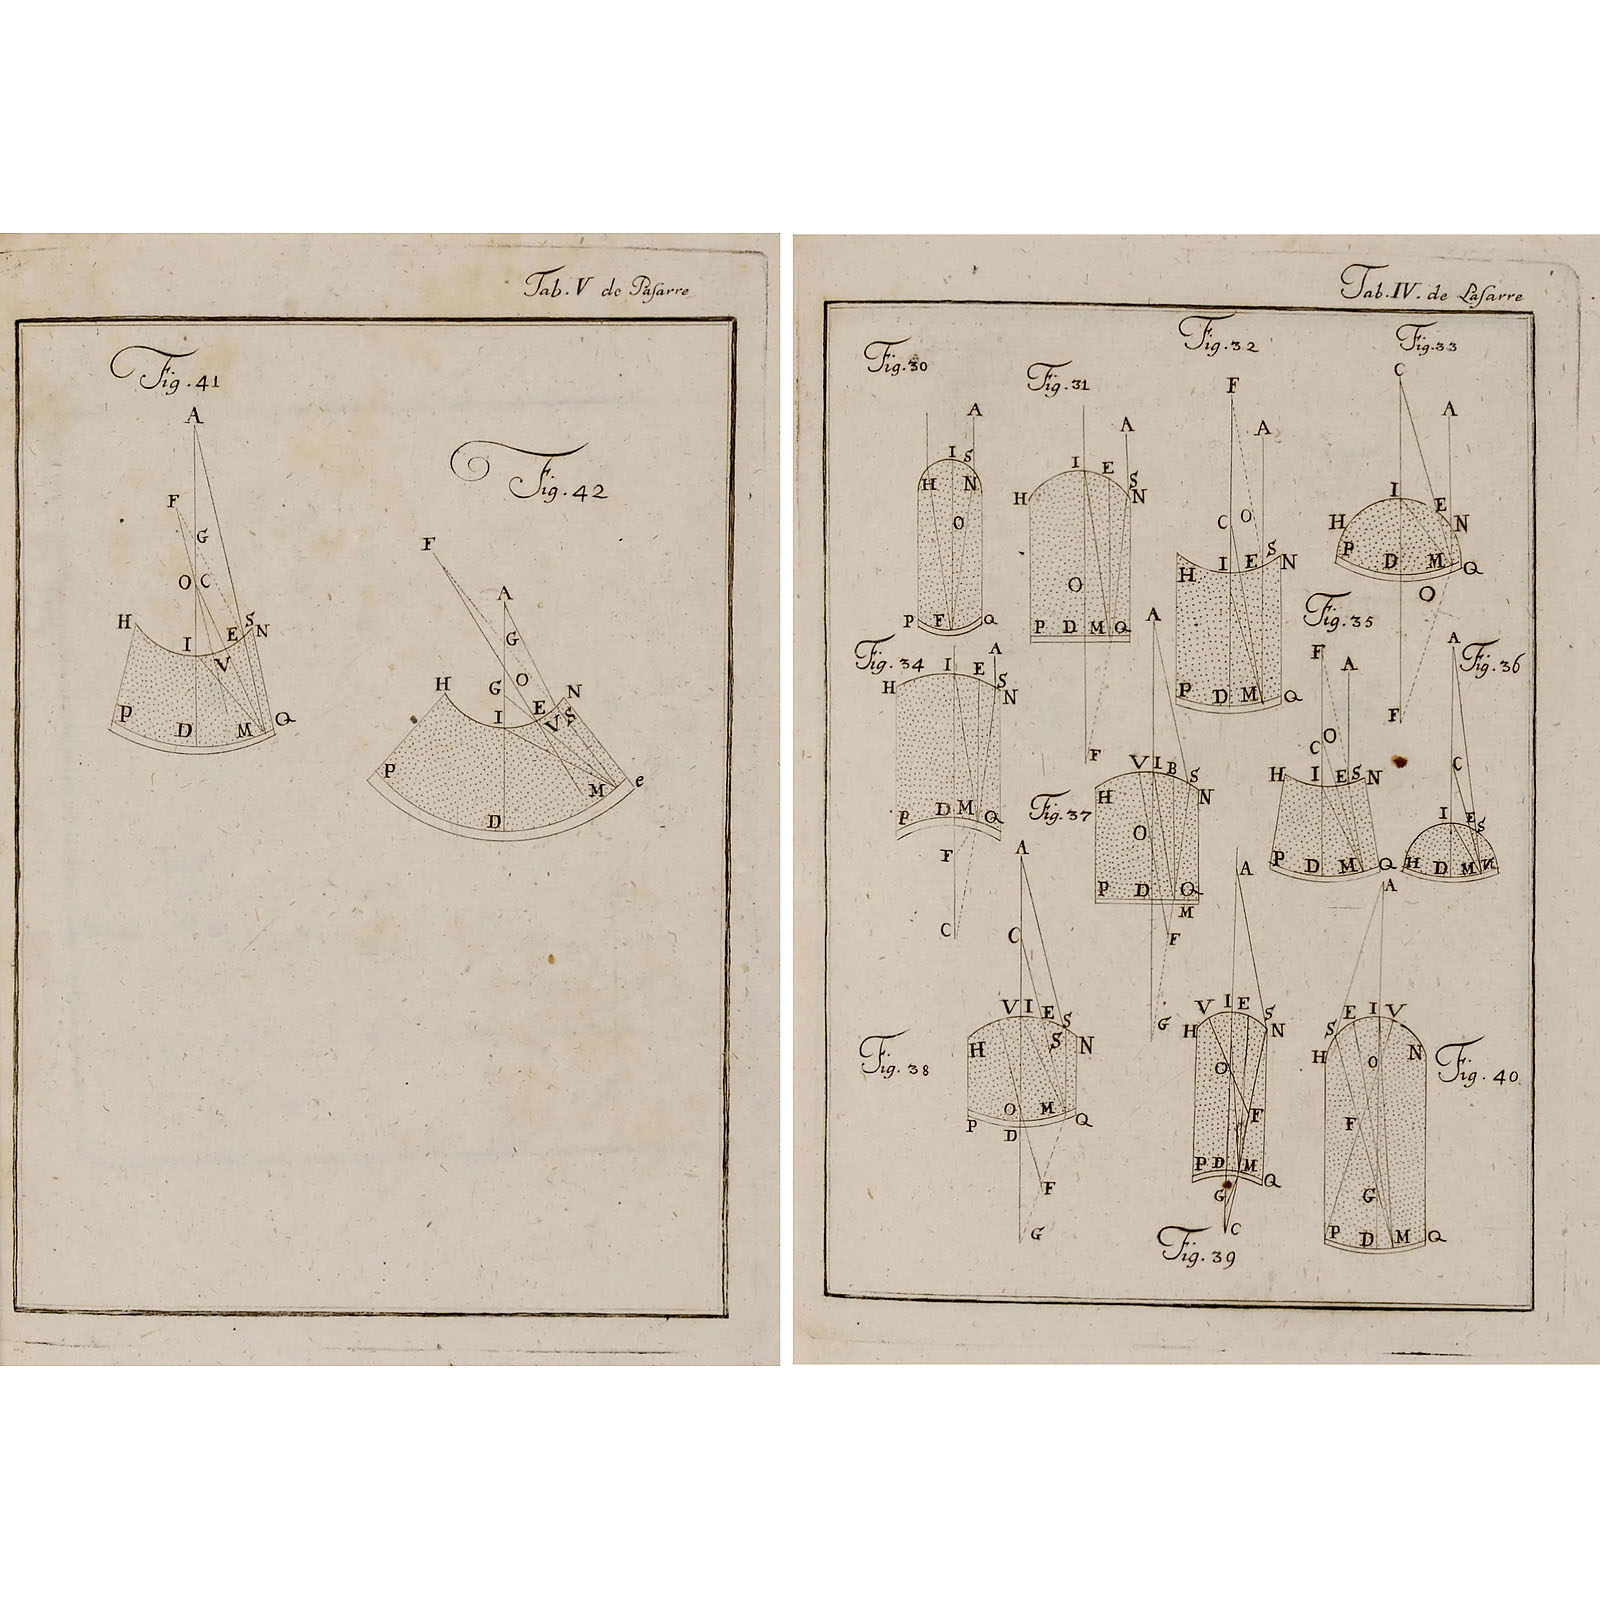 Tab. V de Paſarre
Fig. 41
A
F
G
O C
H
E S N
I
V
P
D
M Q
Fig. 42
F
A
G
O
H
G
N
I
E
V S
P
M
e
D
Tab. IV. de Laſarre
Fig. 30
A
I S
H N
O
P F Q
Fig. 31
A
I E
S
H N
O
P D M Q
F
Fig. 32
F
A
C O
S
H I E N
P D M Q
Fig. 33
C
A
I
E
H N
P D M Q
O
F
Fig. 34
A
I E
S
H N
P D M Q
F
C
Fig. 35
F A
C O
H I E S N
P D M Q
Fig. 36
A
C
I E
S
H D M N
Fig. 37
A
V I B S
H N
O
P D Q
M
F
G
Fig. 38
A
C
V I E S
H S N
O M
P D Q
F
G
Fig. 39
A
V I E S
H N
O
F
P D M Q
G
C
Fig. 40
A
S E I V
H O N
F
G
P D M Q